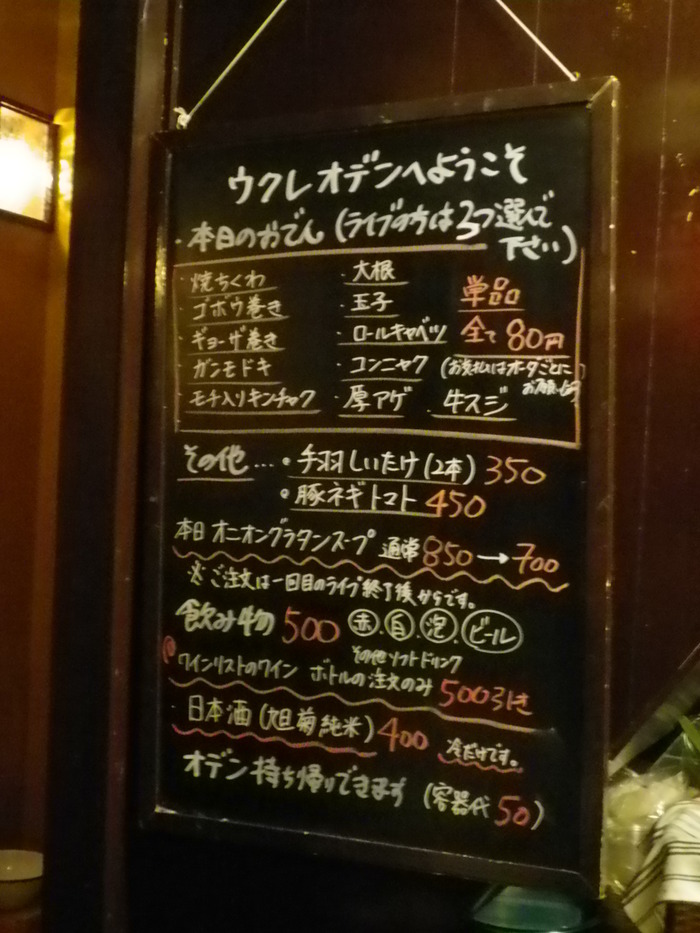 ウクレオデンへようこそ
・本日のおでん(ライブの方は3つ選んで下さい)
・焼ちくわ ・大根 単品
・ゴボウ巻き ・玉子 全て80円
・ギョーザ巻き ・ロールキャベツ
・ガンモドキ ・コンニャク (お支払はオーダごとにお願い
・モチ入りキンチャク ・厚アゲ ・牛スジ
その他…・手羽しいたけ(2本) 350
・豚ネギトマト 450
本日 オニオングラタンスープ 通常850→700
※ご注文は一回目のライブ終了後からです。
飲み物 500 赤.白.泡.ビール
その他ソフトドリンク
ワインリストのワイン ボトルの注文のみ 500引き
・日本酒(旭菊純米)400 冷だけです。
オデン持ち帰りできます (容器代50)